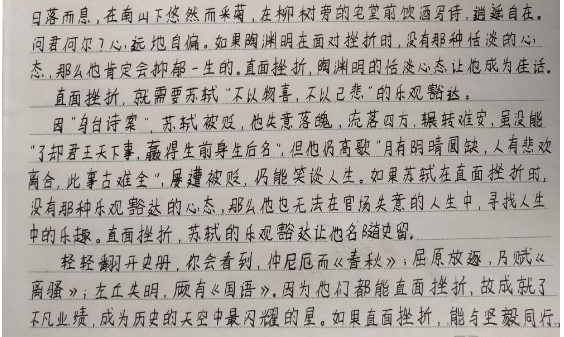 日落而息，在南山下悠然而采菊，在柳树旁的宅堂前饮酒写诗，逍遥自在。
问君何尔？心远地自偏。如果陶渊明在面对挫折时，没有那种恬淡的心
态，那么他肯定会抑郁一生的。直面挫折，陶渊明的恬淡心态让他成为佳话。
直面挫折，就需要苏轼“不以物喜，不以己悲”的乐观豁达。
因“乌台诗案”，苏轼被贬，他失意落魄，流落四方，辗转难安，虽没能
“了却君王天下事，赢得生前身后名”，但他仍高歌“月有阴晴圆缺，人有悲欢
离合，此事古难全”，屡遭被贬，仍能笑谈人生。如果苏轼在直面挫折时，
没有那种乐观豁达的心态，那么他也无法在官场失意的人生中，寻找人生
中的乐趣。直面挫折，苏轼的乐观豁达让他名随史留。
轻轻翻开史册，你会看到，仲尼厄而《春秋》；屈原放逐，乃赋《
离骚》；左丘失明，厥有《国语》。因为他们都能直面挫折，故成就了
不凡业绩，成为历史的天空中最闪耀的星。如果直面挫折，能与坚毅同行，